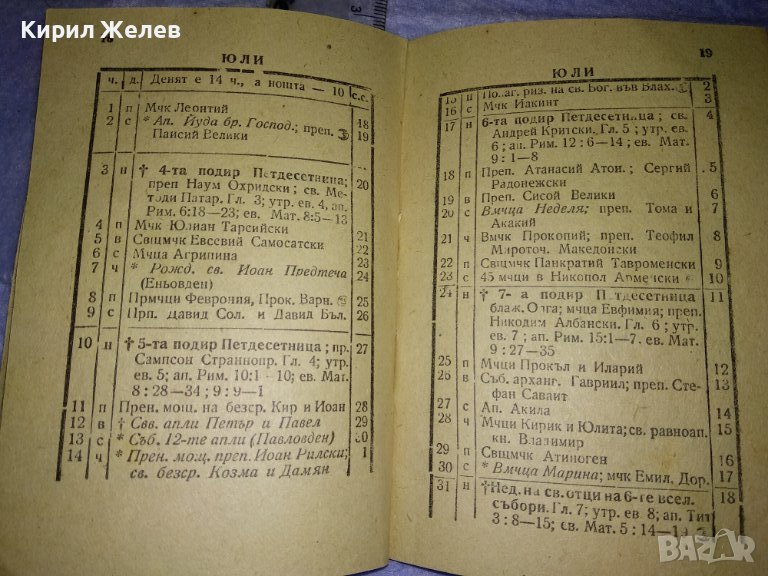 Кирил Желев
18
ЮЛИ
ч. д. Денят е 14 ч., а нощта — 10 с.с.
1 п Мчк Леонтий 18
2 с * Ап. Йуда бр. Господ.; преп. Паисий Велики 19
3 н † 4-та подир Петдесетница;
преп Наум Охридски; св. Ме- 20
тоди Патар. Гл. 3; утр. ев. 4, ап.
Рим. 6:18—23; ев. Мат. 8:5—13
4 п Мчк Юлиан Тарсийски 21
5 в Свщмчк Евсевий Самосатски 22
6 с Мчца Агрипина 23
7 ч * Рожд. св. Иоан Предтеча 24
(Еньовден)
8 п Прмчци Феврония, Прок. Варн. 25
9 с Прп. Давид Сол. и Давид Бъл. 26
10 н † 5-та подир Петдесетница; пр. 27
Сампсон Страннопр. Гл. 4; утр.
ев. 5; ап. Рим. 10:1—10; ев. Мат.
8:28—34; 9:9—1
11 п Прен. мощ. на безср. Кир и Иоан 28
12 в † Свв. апли Петър и Павел 29
13 с * Съб. 12-те апли (Павловден) 30
14 ч * Прен. мощ. преп. Иоан Рилски; 1
св. безср. Козма и Дамян
19
ЮЛИ
15 п По.аг. риз. на св. Бог. във Влах. 2
16 с Мчк Иакинт 3
17 н 6-та подир Петдесетница; св. 4
Андрей Критски. Гл. 5; утр. ев.
6; ап. Рим. 12:6—14; ев. Мат.
9:1—8
18 п Преп. Атанасий Атон.; Сергий 5
Радонежски
19 в Преп. Сисой Велики 6
20 с Вмчца Неделя; преп. Тома и 7
Акакий
21 ч Вмчк Прокопий; преп. Теофил 8
Мироточ. Македонски
22 п Свщмчк Панкратий Тавроменски 9
23 с 45 мчци в Никопол Арменски 10
24 н † 7-а подир Петдесетница 11
блаж. Олга; мчца Евфимия; преп.
Никодим Албански. Гл. 6; утр.
ев. 7; ап. Рим. 15:1—7. ев. Мат.
9:27—35
25 п Мчци Прокъл и Иларий 12
26 в Съб. арханг. Гавриил; преп. Сте- 13
фан Саваит
27 с Ап. Акила 14
28 ч Мчци Кирик и Юлита; св. равноап. 15
кн. Владимир
29 п Свщмчк Атиноген 16
30 с * Вмчца Марина; мчк Емил. Дор. 17
31 н † Нед. на св. отци на 6-те всел. 18
събори. Гл. 7; утр. ев. 8; ап. Тит
3:8—15; св. Мат. 5:14—19
BAZAR